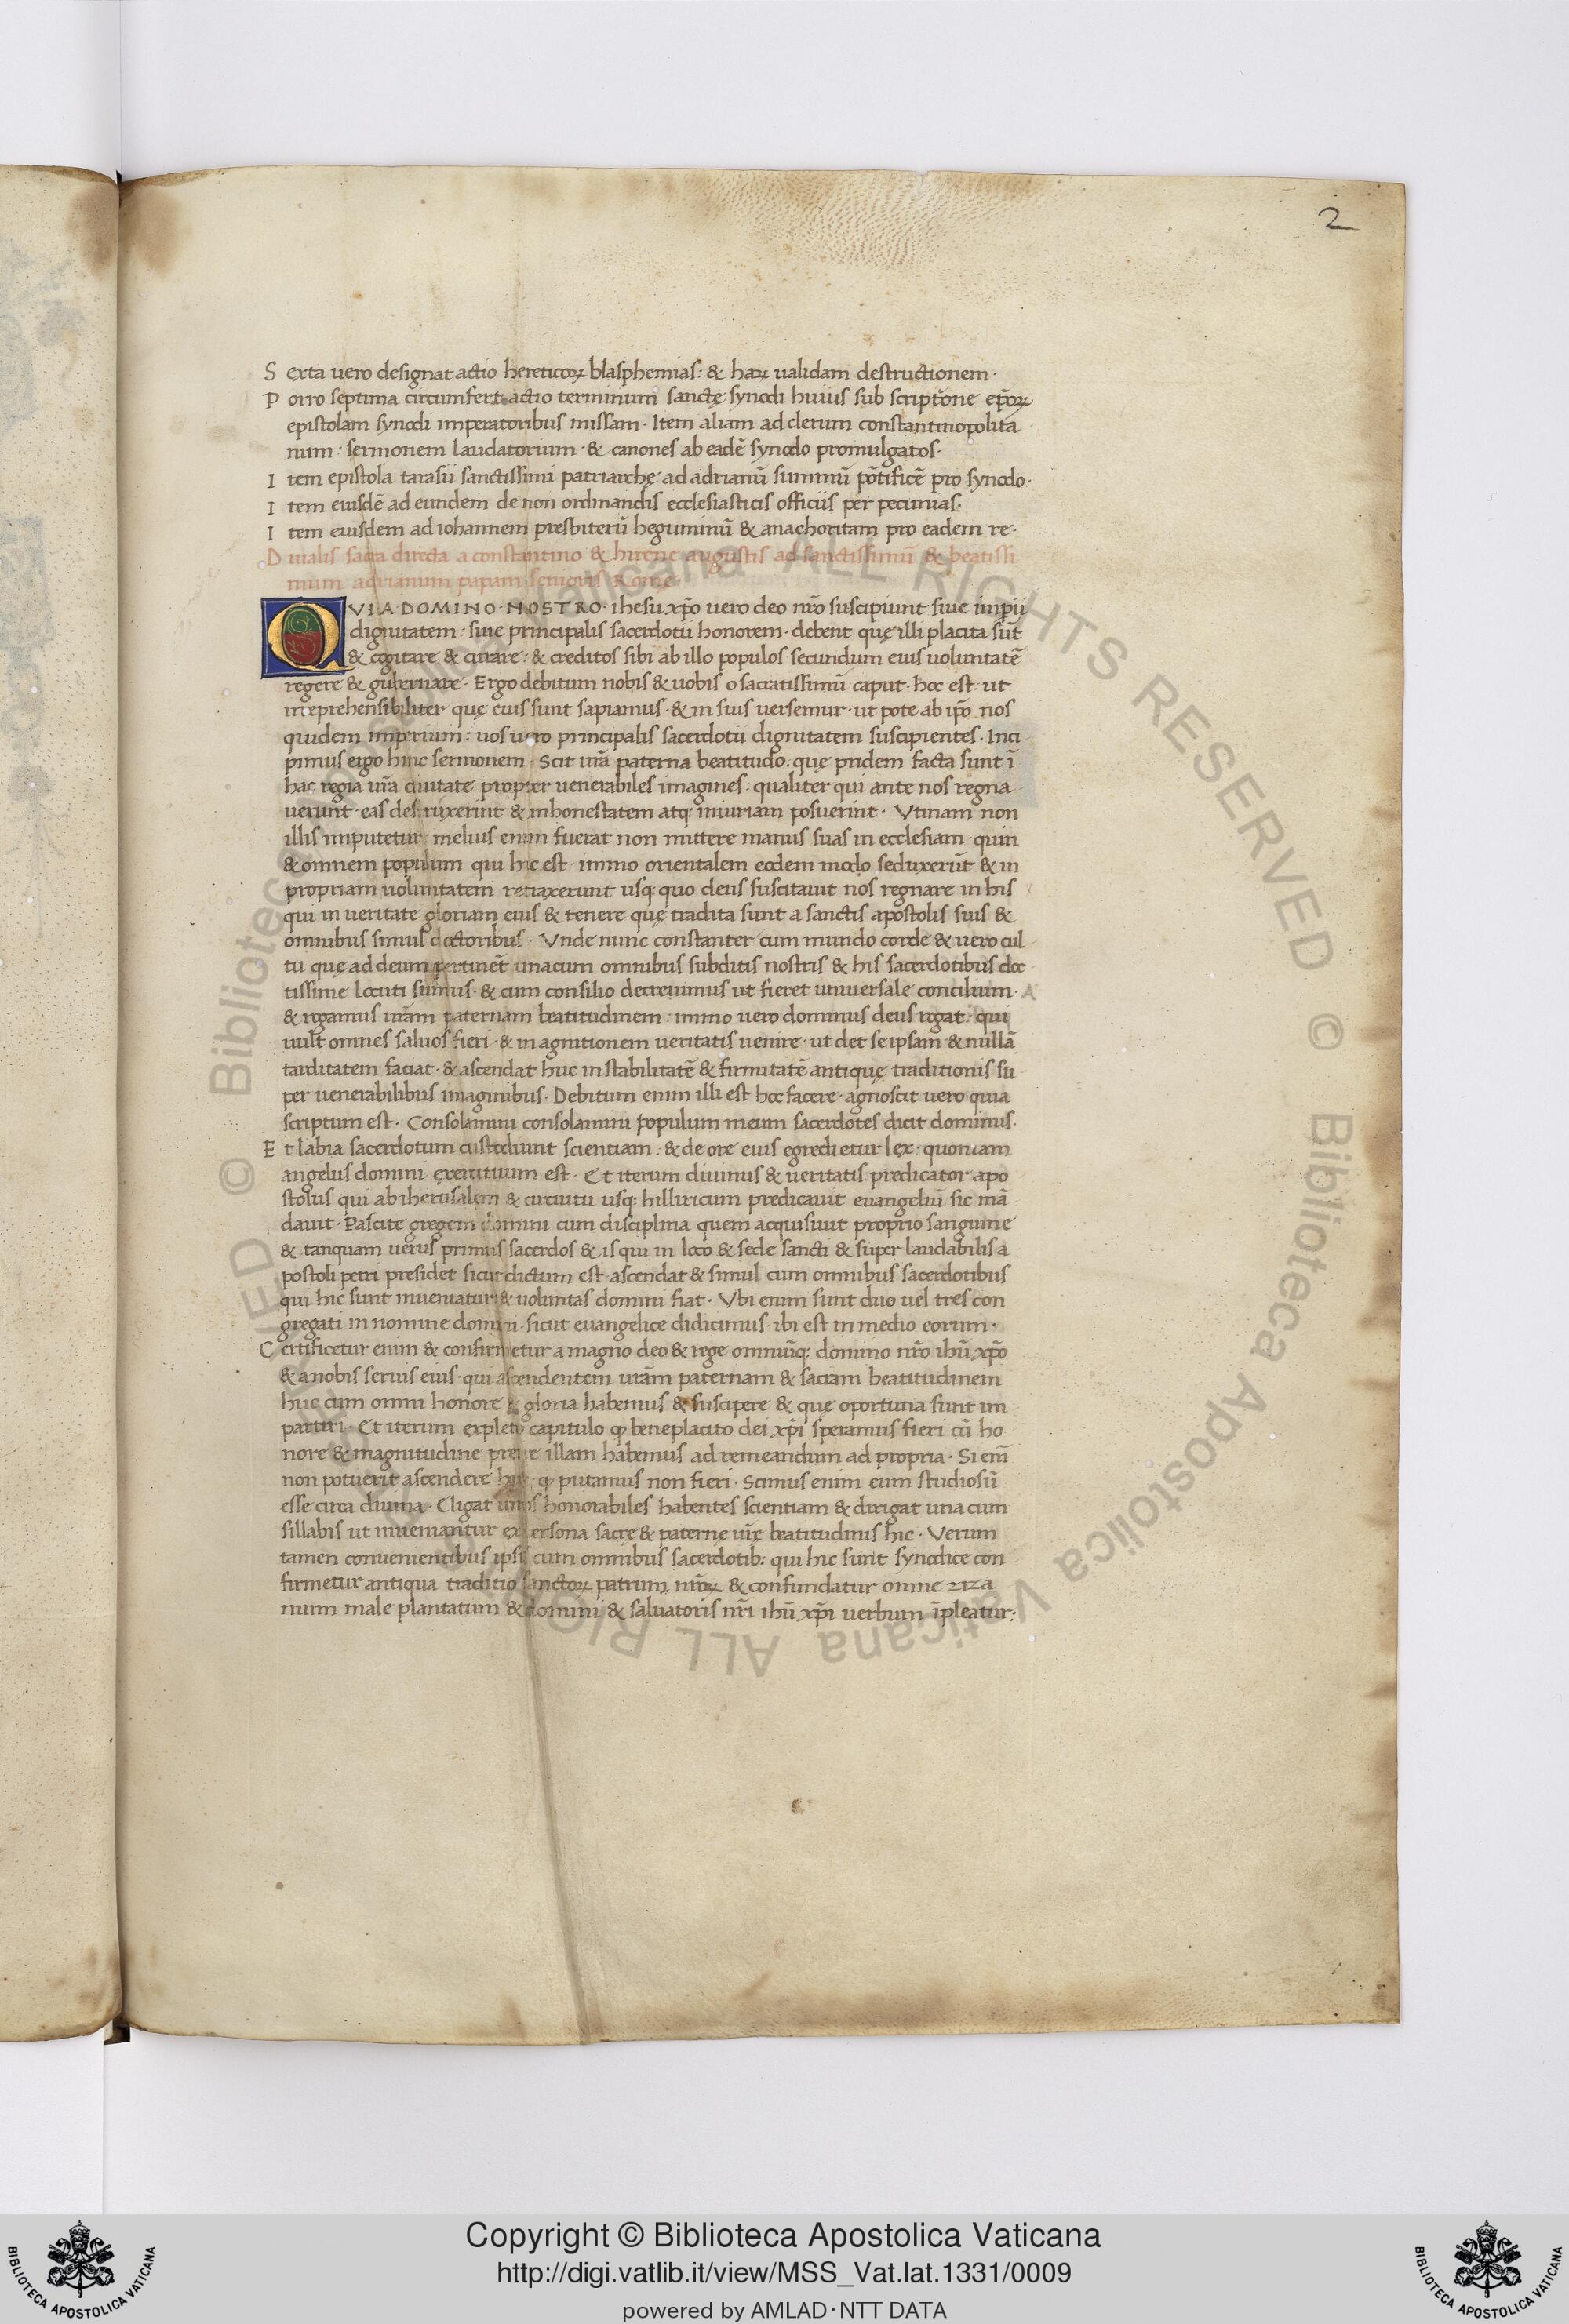 2
S exta uero designat actio hereticoꝝ blasphemias: & haꝝ ualidam destructionem·
P orro septima circumfert actio terminum sanctę synodi huius sub scriptiõne ep̃oꝝ
epistolam synodi imperatoribus missam· Item aliam ad clerum constantinopolita
num: sermonem laudatorium· & canones ab eadẽ synodo promulgatos·
I tem epistola tarasii sanctissimi patriarchę ad adrianũ summũ põtificẽ pro synodo·
I tem eiusdẽ ad eundem de non ordinandis ecclesiasticis officiis per pecunias·
I tem eiusdem ad iohannem presbiterũ heguminũ & anachoritam pro eadem re·
D iualis sacra directa a constantino & hirene augustis ad sanctissimũ & beatissi
mum adrianum papam senioris Rome·
QVIA·DOMINO·NOSTRO·ihesu xp̃o uero deo nr̃o suscipiunt siue impii
dignitatem: siue principalis sacerdotii honorem· debent quę illi placita sũt
& cogitare & curare: & creditos sibi ab illo populos secundum eius uoluntatẽ
regere & gubernare· Ergo debitum nobis & uobis o sacratissimũ caput· hoc est: ut
irreprehensibiliter quę eius sunt sapiamus· & in suis uersemur· ut pote ab ip̃o nos
quidem imperium: uos uero principalis sacerdotii dignitatem suscipientes· Inci
pimus ergo hinc sermonem· Scit ur̃a paterna beatitudo· quę pridem facta sunt ĩ
hac regia ur̃a ciuitate propter uenerabiles imagines: qualiter qui ante nos regna
uerunt· eas destruxerint & inhonestatem atq; iniuriam posuerint· Vtinam non
illis imputetur: melius enim fuerat non mittere manus suas in ecclesiam· quin
& omnem populum qui hic est· immo orientalem eodem modo seduxerũt & in
propriam uoluntatem retraxerunt usq; quo deus suscitauit nos regnare in his
qui in ueritate gloriam eius & tenere quę tradita sunt a sanctis apostolis suis &
omnibus simul doctoribus· Vnde nunc constanter cum mundo corde & uero cul
tu quę ad deum pertinẽt unacum omnibus subditis nostris & his sacerdotibus doc
tissime locuti sumus· & cum consilio decreuimus ut fieret uniuersale concilium·
& rogamus ur̃am paternam beatitudinem: immo uero dominus deus rogat: qui
uult omnes saluos fieri· & in agnitionem ueritatis uenire· ut det se ipsam & nullã
tarditatem faciat· & ascendat huc in stabilitatẽ & firmitatẽ antiquę traditionis su
per uenerabilibus imaginibus· Debitum enim illi est hoc facere· agnoscit uero quia
scriptum est· Consolamini consolamini populum meum sacerdotes dicit dominus·
E t labia sacerdotum custodiunt scientiam: & de ore eius egredietur lex· quoniam
angelus domini exercituum est· Et iterum diuinus & ueritatis predicator apo
stolus qui ab iherusalem & circuitu usq; hilliricum predicauit euangeliũ sic mã
dauit· Pascite gregem domini cum disciplina quem acquisiuit proprio sanguine
& tanquam uerus primus sacerdos & is qui in loco & sede sancti & super laudabilis a
postoli petri presidet sicut dictum est· ascendat & simul cum omnibus sacerdotibus
qui hic sunt inueniatur: & uoluntas domini fiat· Vbi enim sunt duo uel tres con
gregati in nomine domini· sicut euangelice didicimus· ibi est in medio eorum·
C ertificetur enim & confirmetur a magno deo & rege omniũq; domino nr̃o ihũ xp̃o
& a nobis seruis eius· qui ascendentem ur̃am paternam & sacram beatitudinem
huc cum omni honore & gloria habemus & suscipere & que oportuna sunt im
partiri· Et iterum expleto capitulo qđ beneplacito dei xp̃i speramus fieri cũ ho
nore & magnitudine illam habemus ad remeandum ad propria· Si em̃
non potuerit ascendere huc· qđ putamus non fieri· Scimus enim eum studiosũ
esse circa diuina· Eligat uiros honorabiles habentes scientiam & dirigat una cum
sillabis ut inueniantur ex persona sacrę & paternę ur̃ę beatitudinis hic· Verum
tamen conuenientibus ipsis cum omnibus sacerdotib: qui hic sunt synodice con
firmetur antiqua traditio sanctoꝝ patrum nr̃oꝝ & confundatur omne ziza
nium male plantatum & domini & saluatoris nr̃i ihũ xp̃i uerbum ĩpleatur:
© Biblioteca Apostolica Vaticana ALL RIGHTS RESERVED © Biblioteca Apostolica Vaticana ALL RIGHTS RESERVED
Copyright © Biblioteca Apostolica Vaticana
http://digi.vatlib.it/view/MSS_Vat.lat.1331/0009
powered by AMLAD·NTT DATA
BIBLIOTECA APOSTOLICA VATICANA
BIBLIOTECA APOSTOLICA VATICANA